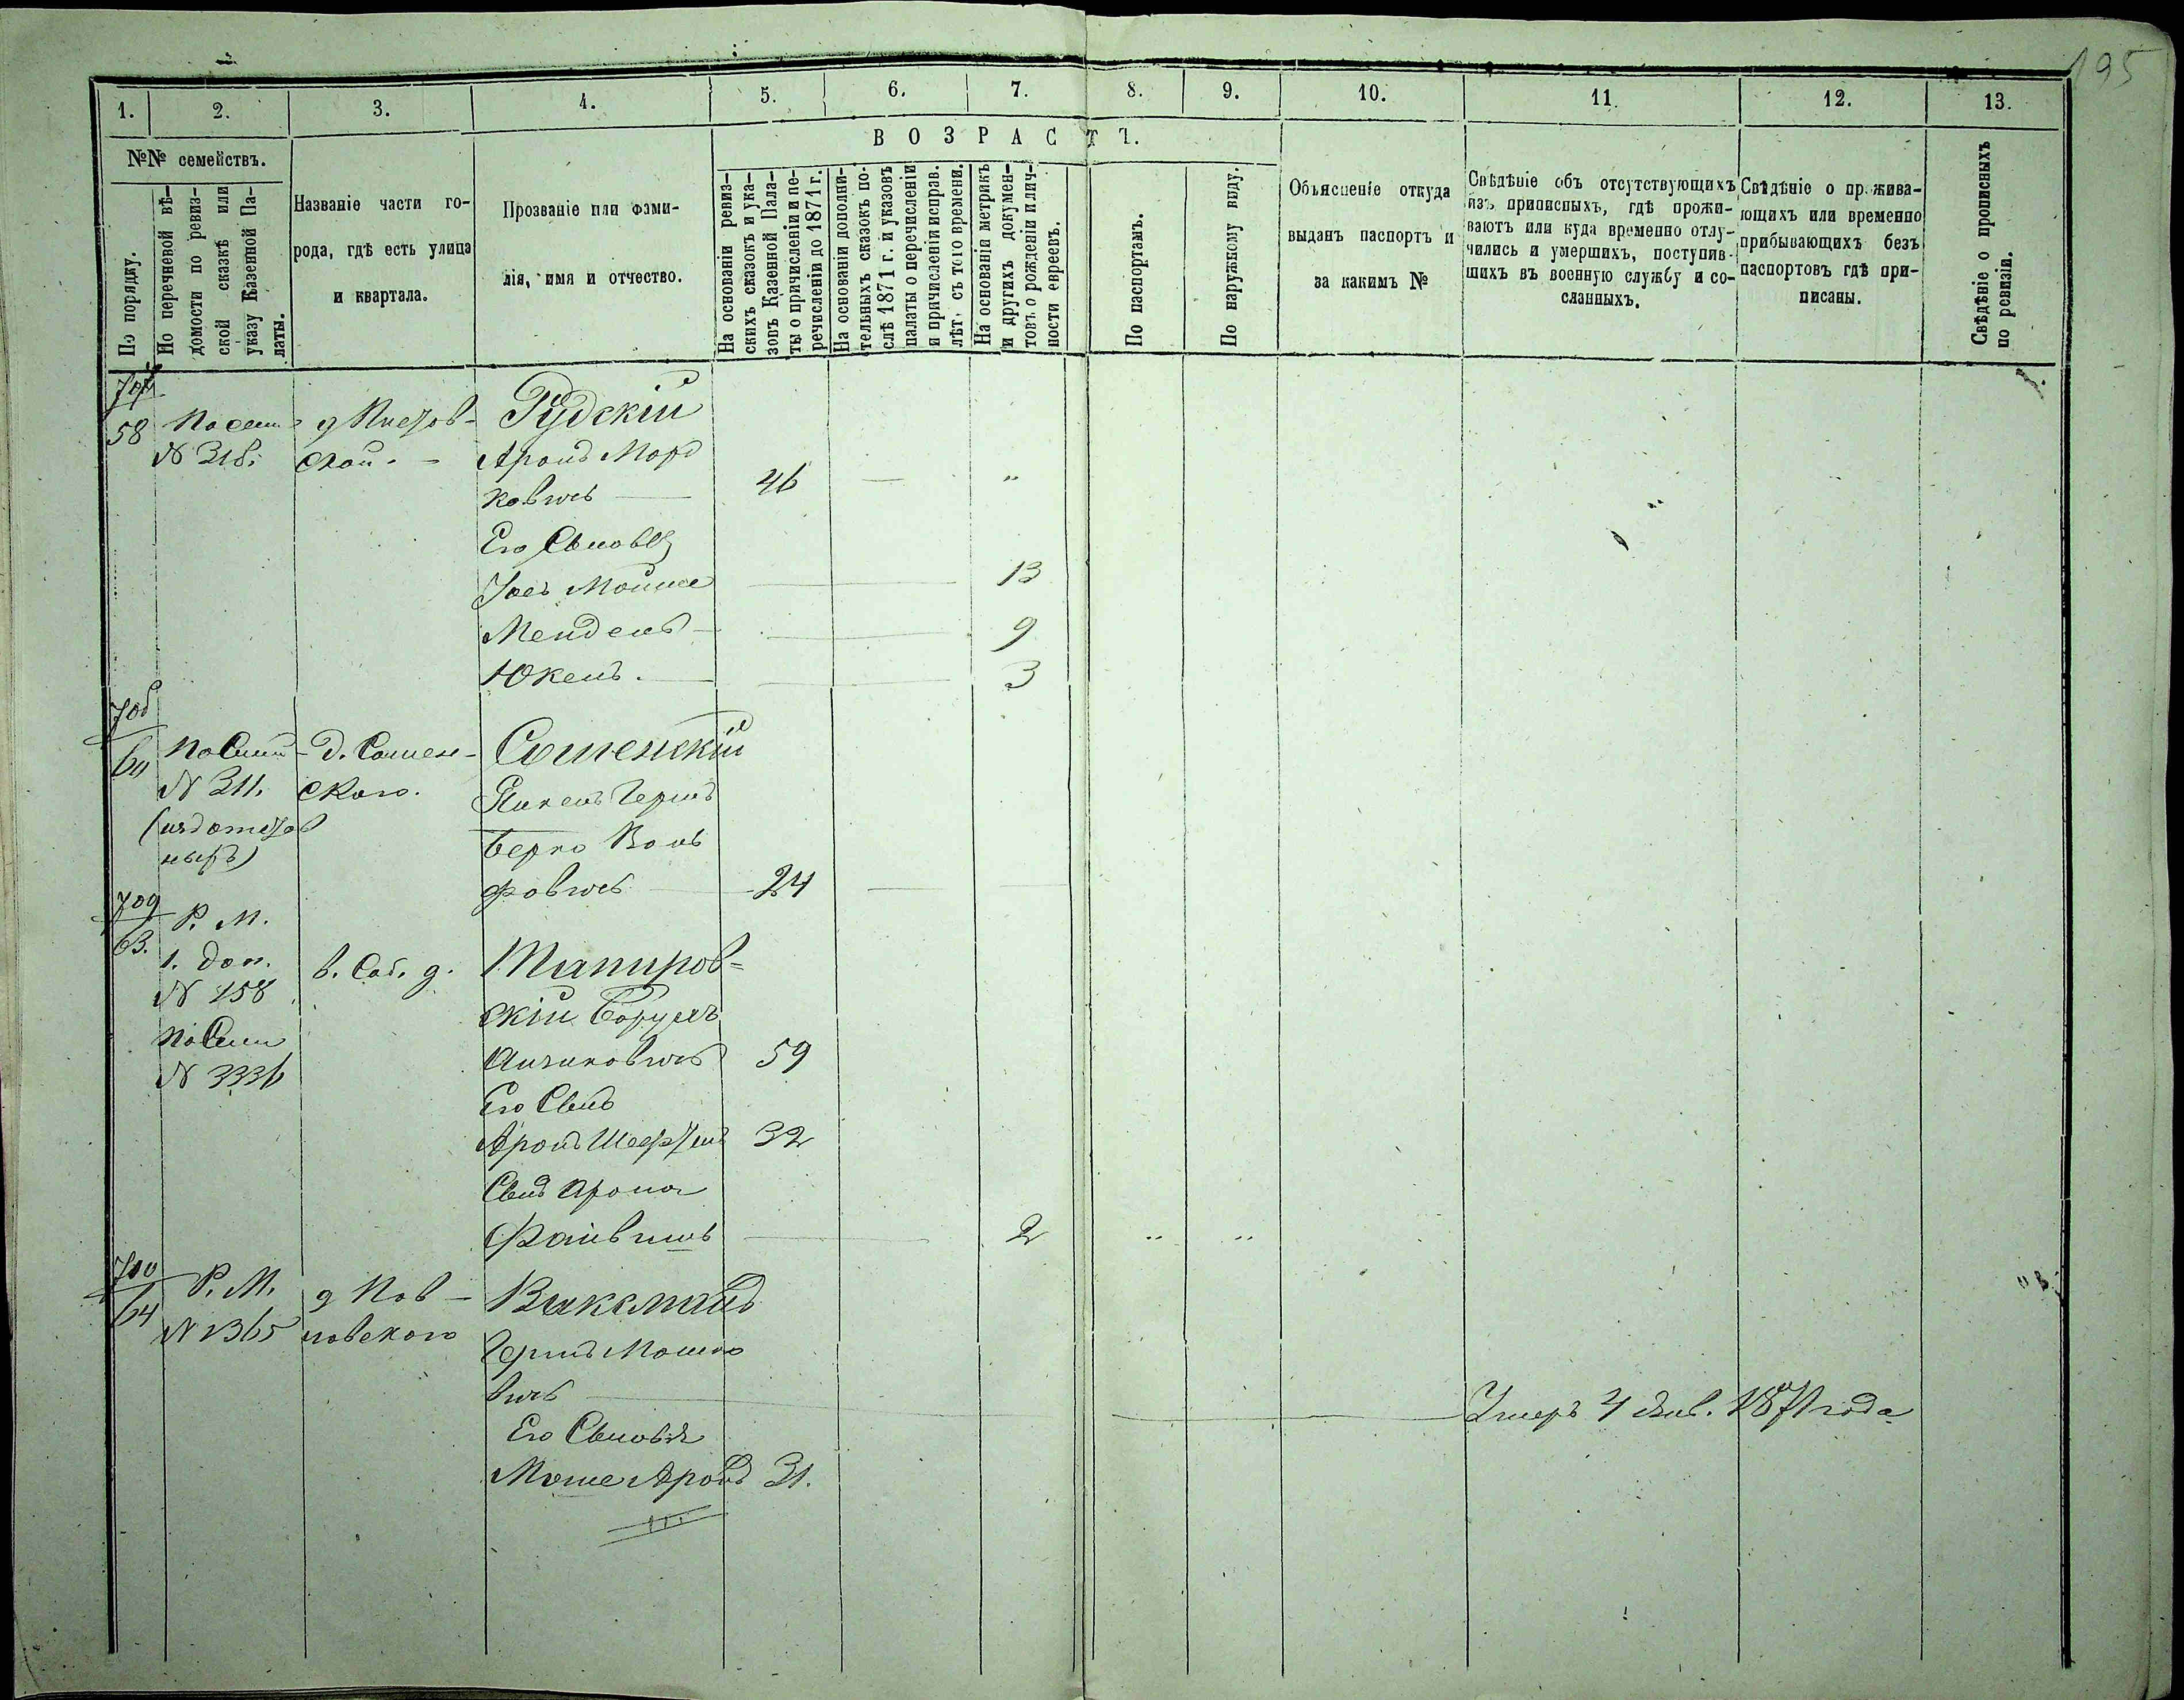 195
1. 2. 3. 4. 5. 6. 7. 8. 9. 10. 11. 12. 13.
ВОЗРАСТЪ.
№№ семействъ.
По порядку.
По перечневой вѣ-
домости по ревиз-
ской сказкѣ или
указу Казенной Па-
латы.
Названіе части го-
рода, гдѣ есть улица
и квартала.
Прозваніе или фами-
лія, имя и отчество.
На основаніи ревиз-
скихъ сказокъ и ука-
зовъ Казенной Пала-
ты о причисленіи и пе-
речисленіи до 1871 г.
На основаніи дополни-
тельныхъ сказокъ по-
слѣ 1871 г. и указовъ
палаты о перечисленіи
и причисленіи исправ.
лѣт. съ того времени.
На основаніи метрикъ
и другихъ докумен-
товъ о рожденіи и лич-
ности евреевъ.
По паспортамъ.
По наружному виду.
Объясненіе откуда
выданъ паспортъ и
за какимъ №
Свѣдѣніе объ отсутствующихъ
изъ приписныхъ, гдѣ прожи-
ваютъ или куда временно отлу-
чились и умершихъ, поступив-
шихъ въ военную службу и со-
сланныхъ.
Свѣдѣніе о прожива-
ющихъ или временно
прибывающихъ безъ
паспортовъ гдѣ при-
писаны.
Свѣдѣніе о прописныхъ
по ревизіи.
58
N 318.
Рудскій
Аронъ Морд
ковичъ 46
Его Сыновья
Іоель Мойше 13
Мендель 9
Юкель 3
708
60
N 311.
Д. Сошен-
ского.
Сошенскій
Янкель Гершъ
Берко Воль
фовичъ 24
709
63.
Р. М.
1. доп.
N 158
N 3336
в. Соб. д.
Тапиров-
скій Борухъ
Ицковичъ 59
Его Сынъ
Аронъ 32
Сынъ Арона
Файвишъ 2
710
64
Р. М.
N 1365
Виксманъ
Гершъ Мошко
вичъ Умеръ 4 Янв. 1871 года
Его Сыновья
Моше Аронъ 31.